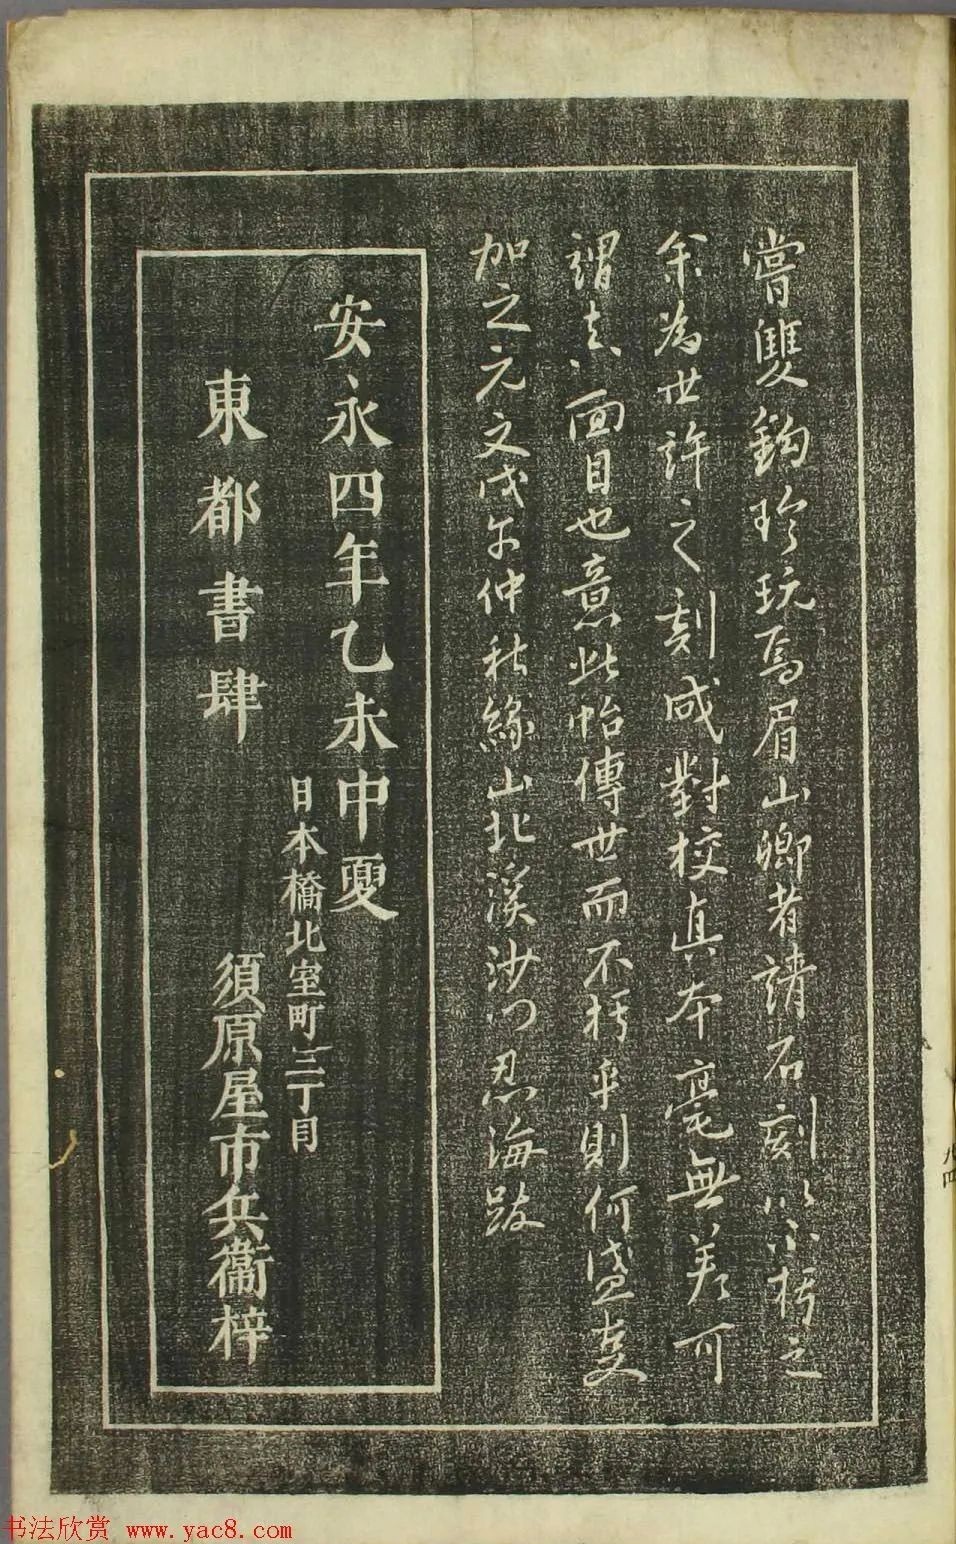 嘗雙鈎珍玩焉眉山卿者請石刻以不朽之
余為世許之刻成對校真本毫無差可
謂真面目也意此帖傳世而不朽乎則何盛更
加之元文戊午仲秋緣山北溪沙门忍海跋
安永四年乙未中夏
日本橋北室町三丁目
東都書肆 須原屋市兵衞梓
九四
书法欣赏 www.yac8.com